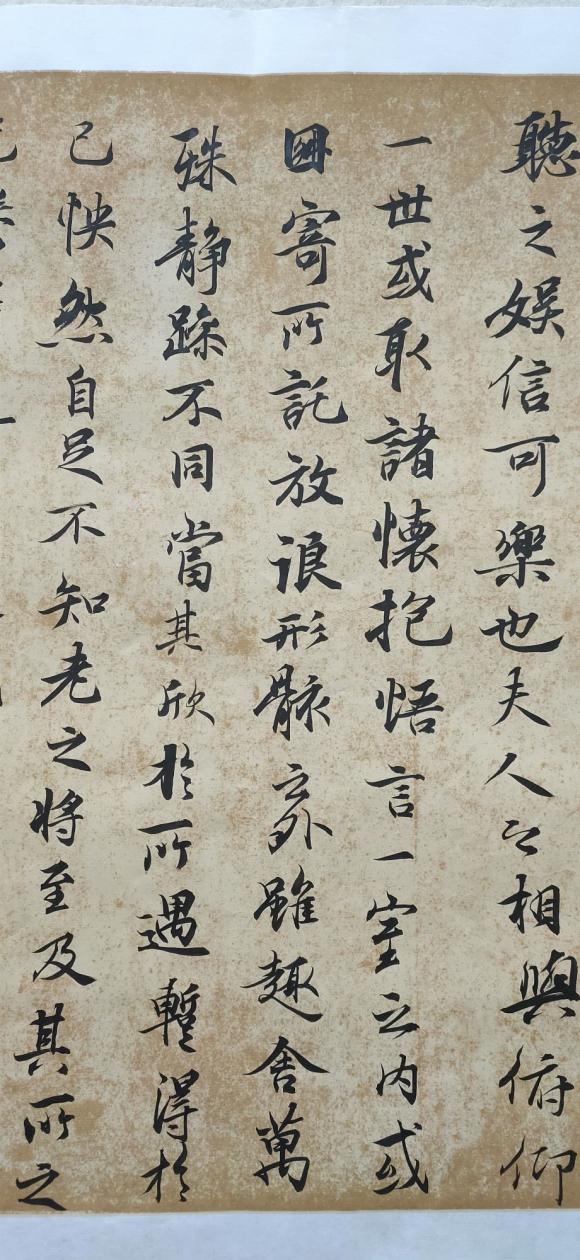 聽之娛信可樂也夫人之相與俯仰
一世或取諸懷抱悟言一室之内或
因寄所託放浪形骸之外雖趣舍萬
殊静躁不同當其欣於所遇暫得於
己怏然自足不知老之将至及其所之